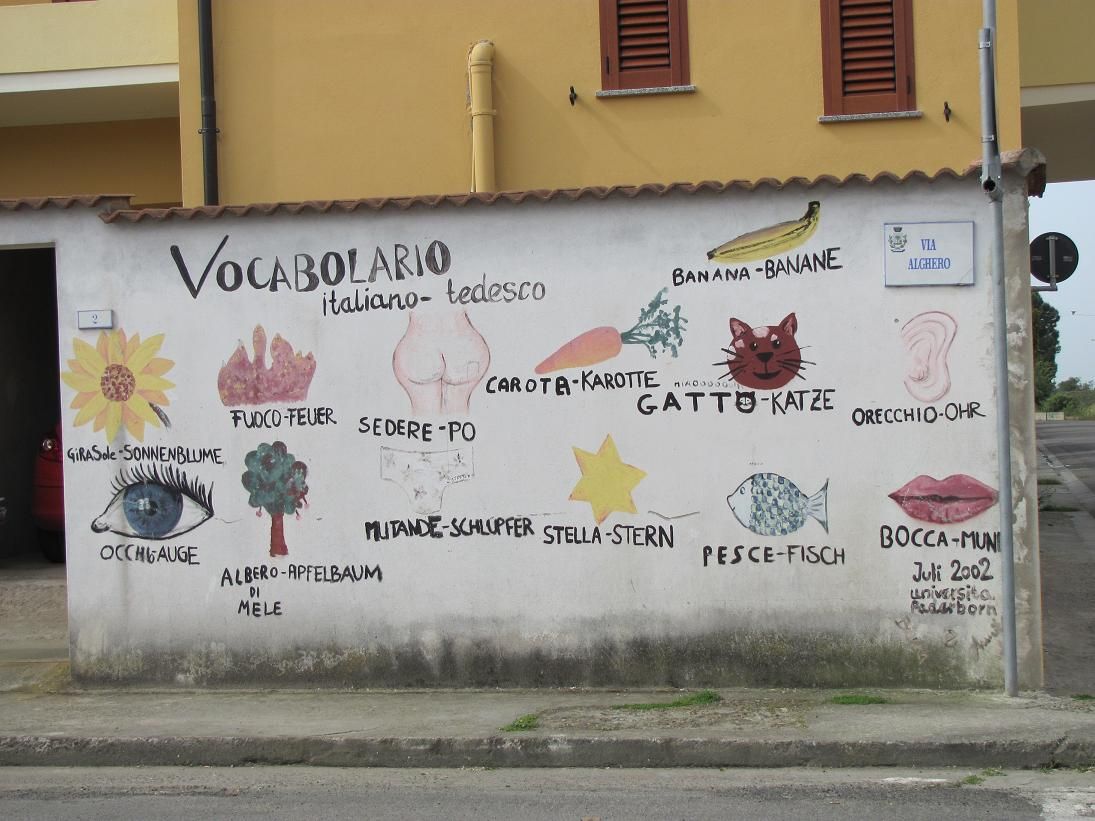 VOCABOLARIO
italiano- tedesco
BANANA-BANANE
VIA
ALGHERO
2
CAROTA-KAROTTE
MIAOOOOO
GATTO-KATZE
ORECCHIO-OHR
FUOCO-FEUER
SEDERE-PO
GIRASole-SONNENBLUME
MUTANDE-SCHLÜPFER
STELLA-STERN
PESCE-FISCH
BOCCA-MUN
OCCHIO-AUGE
ALBERO-APFELBAUM
DI
MELE
Juli 2002
universita
Paderborn